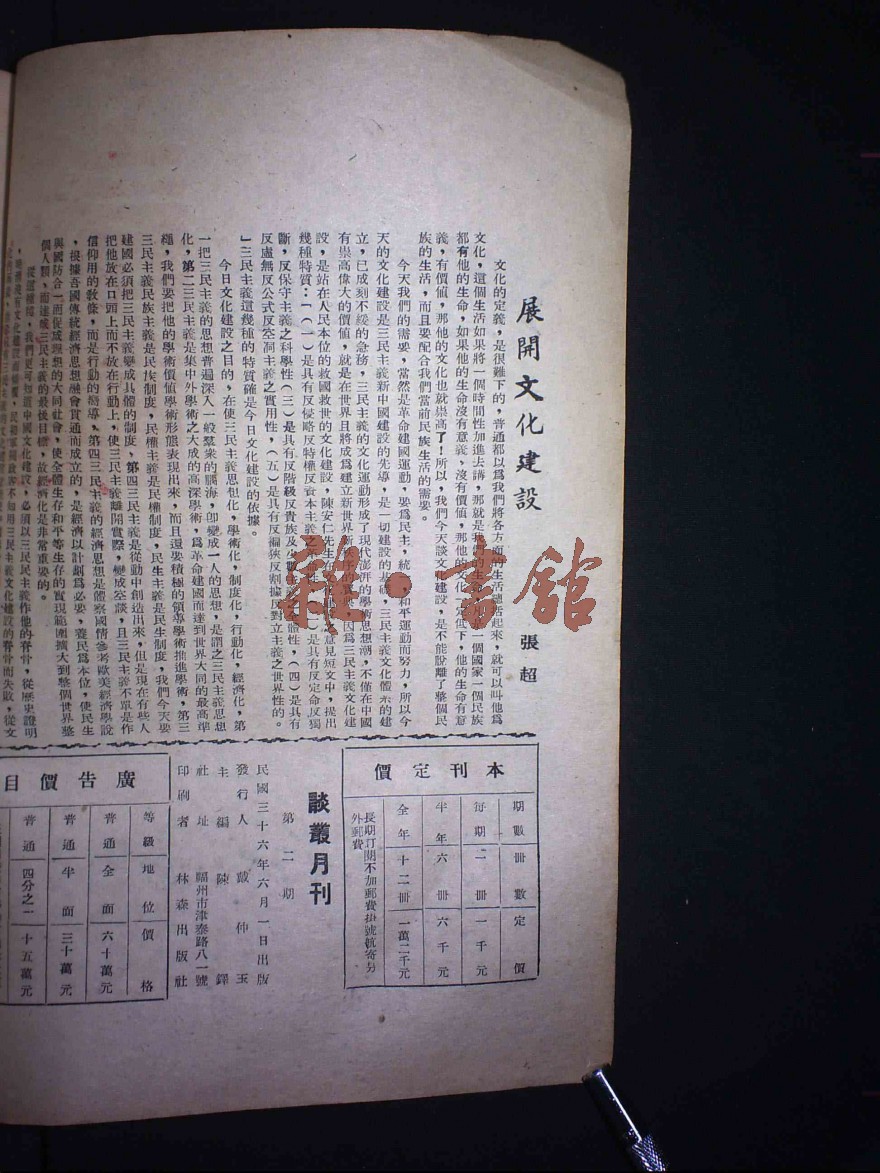 展開文化建設
張超
文化的定義，是很難下的，普通都以為我們將各方面的生活總括起來，就可以叫他為
文化，這個生活如果將一個時間性加進去講，那就是我們的生命，是一個國家一個民族
都有他的生命，如果他的生命沒有意義，沒有價值，那他的文化一定低下，他的生命有意
義，有價值，那他的文化也就崇高了！所以，我們今天談文化建設，是不能脫離了整個民
族的生活，而且要配合我們當前民族生活的需要。
今天我們的需要，當然是革命建國運動，要為民主，統一，和平運動而努力，所以今
天的文化建設是三民主義新中國建設的先導，是一切建設的基礎，三民主義文化體系的建
立，已成刻不緩的急務，三民主義的文化運動形成了現代澎湃的學術思想潮，不僅在中國
有崇高偉大的價値，就是在世界且將成為建立新世界新秩序的寶典，因為三民主義文化建
設，是站在人民本位的救國救世的文化建設，陳安仁先生在 之意見短文中，提出
幾種特質：「（一）是具有反侵略反特權反資本主義之 性（二）是具有反定命反獨
斷，反保守主義之科學性（三）是具有反階級反貴族及少數 體性，（四）是具有
反虛無反公式反空洞主義之實用性，（五）是具有反褊狹反割據反對立主義之世界性的。
」三民主義這幾種的特質確是今日文化建設的依據。
今日文化建設之目的，在使三民主義思想化，學術化，制度化，行動化，經濟化，第
一把三民主義的思想普遍深入一般羣衆的腦海，卽變成一人的思想，是謂之三民主義思想
化，第二三民主義是集中外學術之大成的高深學術，為革命建國而達到世界大同的最高準
繩，我們要把他的學術價值學術形態表現出來，而且還要積極的領導學術推進學術，第三
三民主義民族主義是民族制度，民權主義是民權制度，民生主義是民生制度，我們今天要
建國必須把三民主義變成具體的制度，第四三民主義是從動中創造出來，但是現在有些人
把他放在口頭上而不放在行動上，使三民主義離開實際，變成空談，且三民主義不單是作
信仰用的教條，而是行動的嚮導，第四三民主義的經濟思想是體察國情參考歐美經濟學說
，根據吾國傳統經濟思想融會貫通而成立的，是經濟以計劃為必要，養民為本位，使民生
與國防合一而促成理想的大同社會，使全體生存和平等生存的實現範圍擴大到整個世界整
個人類，而達成三民主義的最後目標，故經濟化是非常重要的。
從這種種，我們更可知道中國文化建設，必須以三民民主義作他的脊骨，從歷史證明
三民主義文化建設的脊骨而失敗，從文
本刊定價
期數 冊數 定價
每期 一冊 一千元
半年 六冊 六千元
全年 十二冊 一萬二千元
長期訂閱不加郵費掛號航寄另
外郵費
談叢月刊
第二期
民國三十六年六月一日出版
發行人 戴仲玉
主編 陳鐸
社址 福州市津泰路八一號
印刷者 林森出版社
廣告價目
等級 地位 價格
普通 全面 六十萬元
普通 半面 三十萬元
普通 四分之一 十五萬元